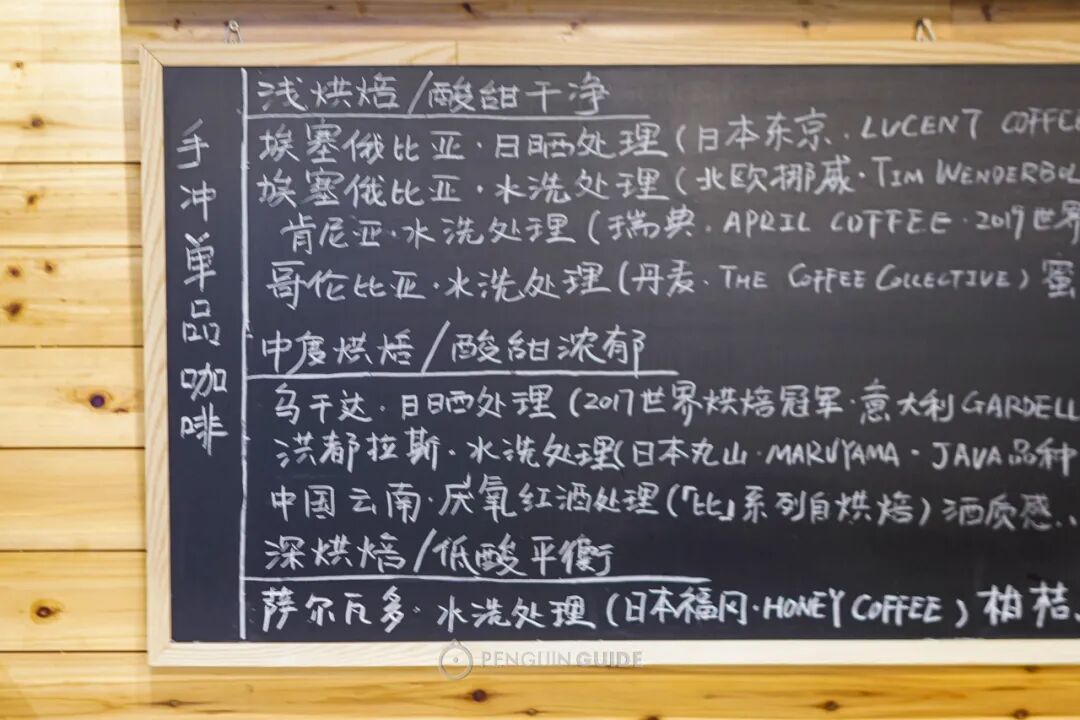 手冲单品咖啡
浅烘焙/酸甜干净
埃塞俄比亚·日晒处理(日本东京·LUCENT COFFEE
埃塞俄比亚·水洗处理(北欧挪威·TIM WENDERBOL
肯尼亚·水洗处理(瑞典·APRIL COFFEE·2019世界
哥伦比亚·水洗处理(丹麦·THE COFFEE COLLECTIVE)蜜
中度烘焙/酸甜浓郁
乌干达·日晒处理(2017世界烘焙冠军·意大利GARDELL
洪都拉斯·水洗处理(日本丸山·MARUYAMA·JAVA品种
中国云南·厌氧红酒处理(「比」系列自烘焙)酒质感、
深烘焙/低酸平衡
萨尔瓦多·水洗处理(日本福冈·HONEY COFFEE)柑桔、
PENGUIN GUIDE